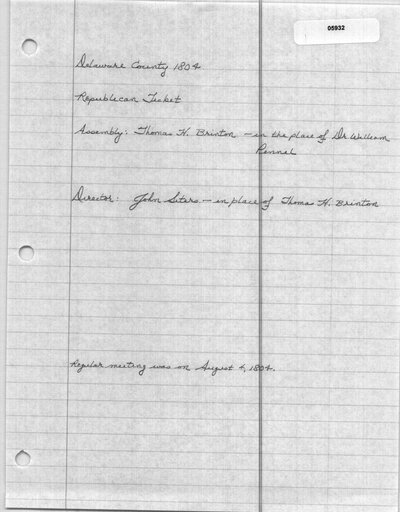 05932
Delaware County 1804
Republican Ticket
Assembly: Thomas H. Brinton - in the place of Dr William
Pennel
Director: John Seters - in place of Thomas H. Brinton
Regular meeting was on August 4, 1804.